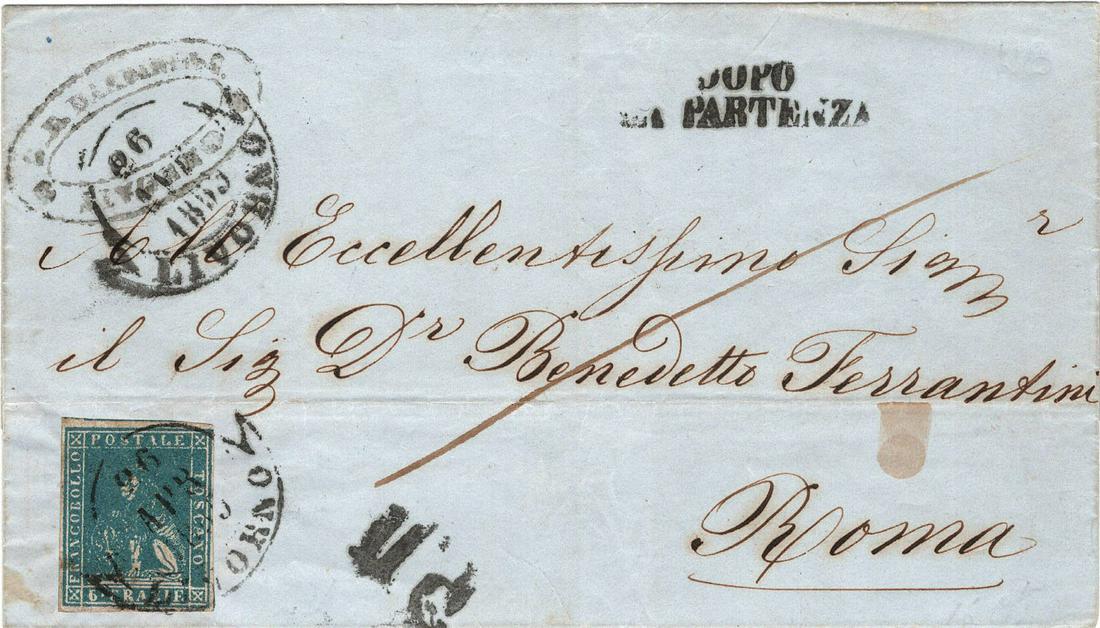 DOPO
LA PARTENZA
26
1855
LIVORNO
All Eccellentissimo Sigr
il Sig Dr Benedetto Ferrantini
Roma
FRANCOBOLLO
POSTALE
TOSCANO
6 CRAZIE
26
APR
LIVORNO